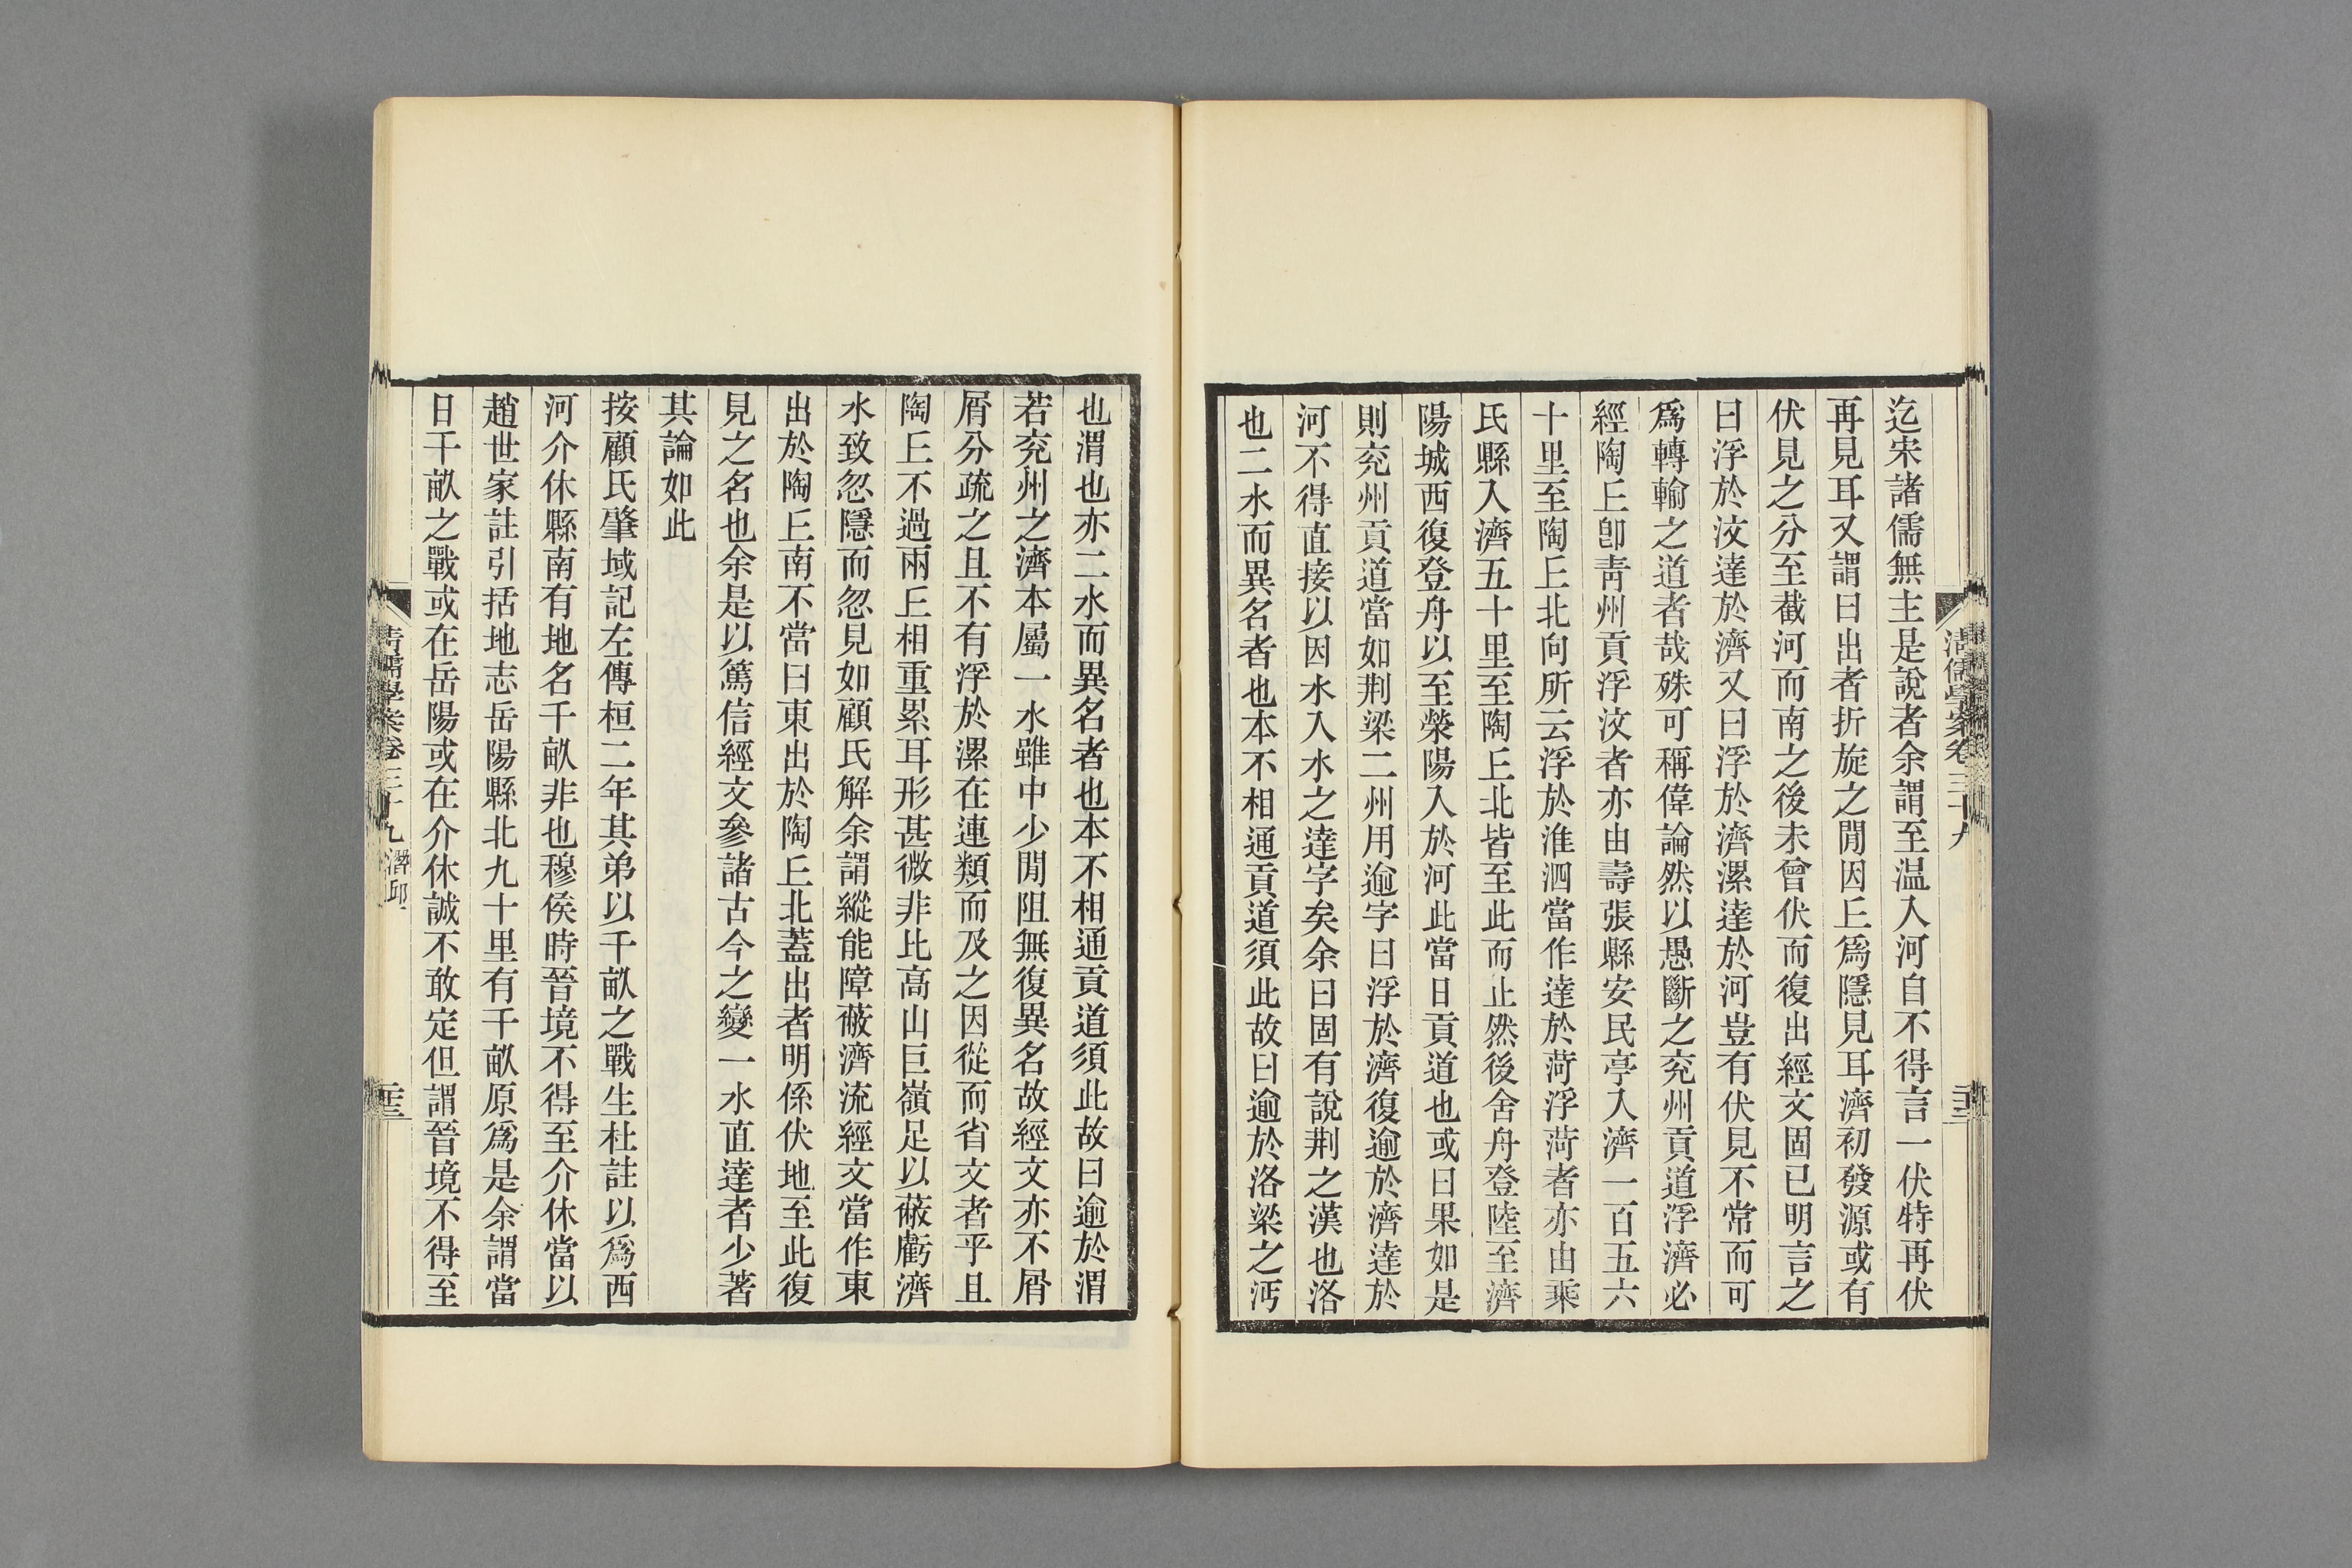 清儒學案卷三十九
二十二
迄宋諸儒無主是說者余謂至温入河自不得言一伏特再伏
再見耳又謂曰出者折旋之閒因丘爲隱見耳濟初發源或有
伏見之分至截河而南之後未曾伏而復出經文固已明言之
曰浮於汶達於濟又曰浮於濟漯達於河豈有伏見不常而可
爲轉輸之道者哉殊可稱偉論然以愚斷之兖州貢道浮濟必
經陶丘卽靑州貢浮汶者亦由壽張縣安民亭入濟一百五六
十里至陶丘北向所云浮於淮泗當作達於菏浮菏者亦由乘
氏縣入濟五十里至陶丘北皆至此而止然後舍舟登陸至濟
陽城西復登舟以至滎陽入於河此當日貢道也或曰果如是
則兖州貢道當如荆梁二州用逾字曰浮於濟復逾於濟達於
河不得直接以因水入水之達字矣余曰固有說荆之漢也洛
也二水而異名者也本不相通貢道須此故曰逾於洛梁之沔
也渭也亦二水而異名者也本不相通貢道須此故曰逾於渭
若兖州之濟本屬一水雖中少閒阻無復異名故經文亦不屑
屑分疏之且不有浮於漯在連類而及之因從而省文者乎且
陶丘不過兩丘相重累耳形甚微非比高山巨嶺足以蔽虧濟
水致忽隱而忽見如顧氏解余謂縱能障蔽濟流經文當作東
出於陶丘南不當曰東出於陶丘北蓋出者明係伏地至此復
見之名也余是以篤信經文參諸古今之變一水直達者少著
其論如此
按顧氏肇域記左傳桓二年其弟以千畝之戰生杜註以爲西
河介休縣南有地名千畝非也穆侯時晉境不得至介休當以
趙世家註引括地志岳陽縣北九十里有千畝原爲是余謂當
日千畝之戰或在岳陽或在介休誠不敢定但謂晉境不得至
清儒學案卷三十九 潛邱
二十二